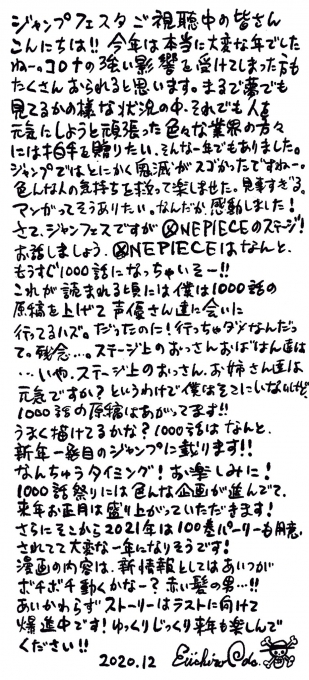 ジャンプフェスタご視聴中の皆さん
こんにちは!! 今年は本当に大変な年でした
ねー。コロナの強い影響を受けてしまった方も
たくさんおられると思います。まるで夢でも
見てるかの様な状況の中、それでも人を
元気にしようと頑張った色々な業界の方々
には拍手を贈りたい、そんな一年でもありました。
ジャンプではとにかく鬼滅がスゴかったですねー。
色んな人の気持ちを救って楽しませた。見事すぎる。
マンガってそうありたい。なんだか感動しました!
さて、ジャンフェスですがONE PIECEのステージ!
お話しましょう。ONE PIECEはなんと、
もうすぐ1000話になっちゃいそー!!
これが読まれる頃には僕は1000話の
原稿を上げて声優さん達に会いに
行ってるハズ。だったのに!行っちゃダメなんだっ
て。残念…。ステージ上のおっさんおばはん達は
…いや、ステージ上のおっさん、お姉さん達は
元気ですか?というわけで僕はそこにいないけど、
1000話の原稿はあがってます!!
うまく描けてるかな?1000話はなんと、
新年一発目のジャンプに載ります!!
なんちゅうタイミング!お楽しみに!
1000話祭りには色んな企画が進んでて、
来年お正月は盛り上がっていただきます!
さらにそこから2021年は100巻パーリーも用意
されてて大変な一年になりそうです!
漫画の内容は、新情報としてはあいつが
ボチボチ動くかなー?赤い髪の男…!!
あいかわらずストーリーはラストに向けて
爆進中です!ゆっくりじっくり来年も楽しんで
ください!!
2020.12 Eiichiro Oda.